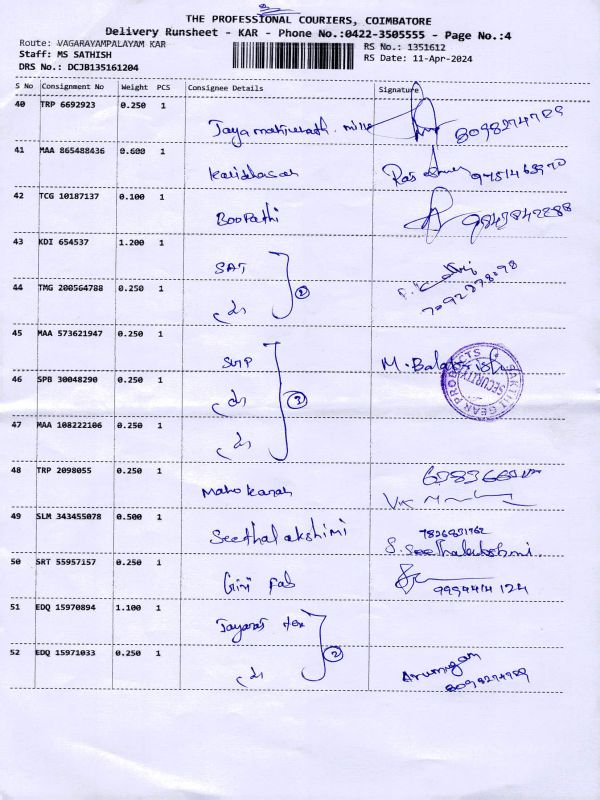 THE PROFESSIONAL COURIERS, COIMBATORE
Delivery Runsheet - KAR - Phone No.:0422-3505555 - Page No.:4
Route: VAGARAYAMPALAYAM KAR
RS No.: 1351612
Staff: MS SATHISH
RS Date: 11-Apr-2024
DRS No.: DCJB135161204
S No Consignment No Weight PCS Consignee Details Signature
40 TRP 6692923 0.250 1
8098274989
41 MAA 865488436 0.600 1
Kalidhasan
42 TCG 10187137 0.100 1
Boopathi 9843842288
43 KDI 654537 1.200 1
SAT
44 TMG 200564788 0.250 1
2
45 MAA 573621947 0.250 1
M. Balakrishnan
SAKTHI GEAR PRODUCTS
SECURITY
46 SPB 30048290 0.250 1
3
47 MAA 108222106 0.250 1
48 TRP 2098055 0.250 1
49 SLM 343455078 0.500 1
Seethalakshimi
S. Seethalakshmi
50 SRT 55957157 0.250 1
Giri Fab
51 EDQ 15970894 1.100 1
Jayaraj Tex
52 EDQ 15971033 0.250 1
2
Arumugam
8098274989